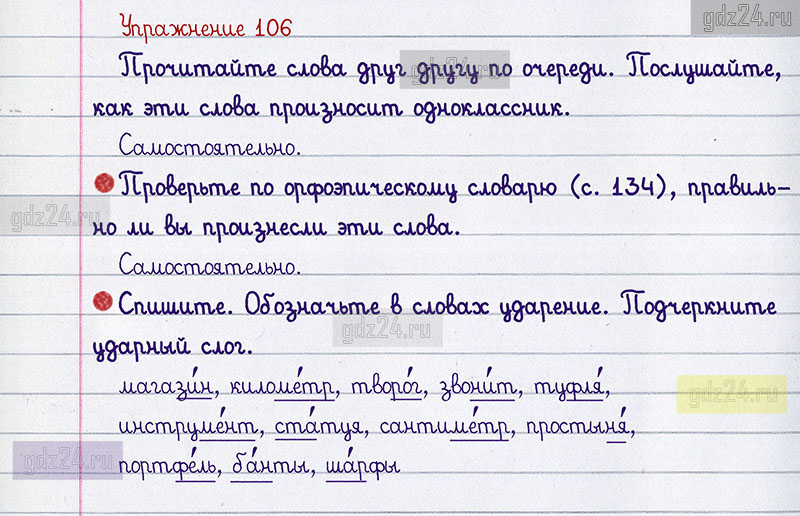 gdz24.ru
Упражнение 106
Прочитайте слова друг другу по очереди. Послушайте,
gdz24.ru
как эти слова произносит одноклассник.
Самостоятельно.
Проверьте по орфоэпическому словарю (с. 134), правиль-
gdz24.ru
но ли вы произнесли эти слова.
Самостоятельно.
Спишите. Обозначьте в словах ударение. Подчеркните
gdz24.ru
ударный слог.
магази́н, киломе́тр, творо́г, звони́т, туфля́,
gdz24.ru
инструме́нт, ста́туя, сантиме́тр, простыня́,
gdz24.ru
портфе́ль, ба́нты, ша́рфы